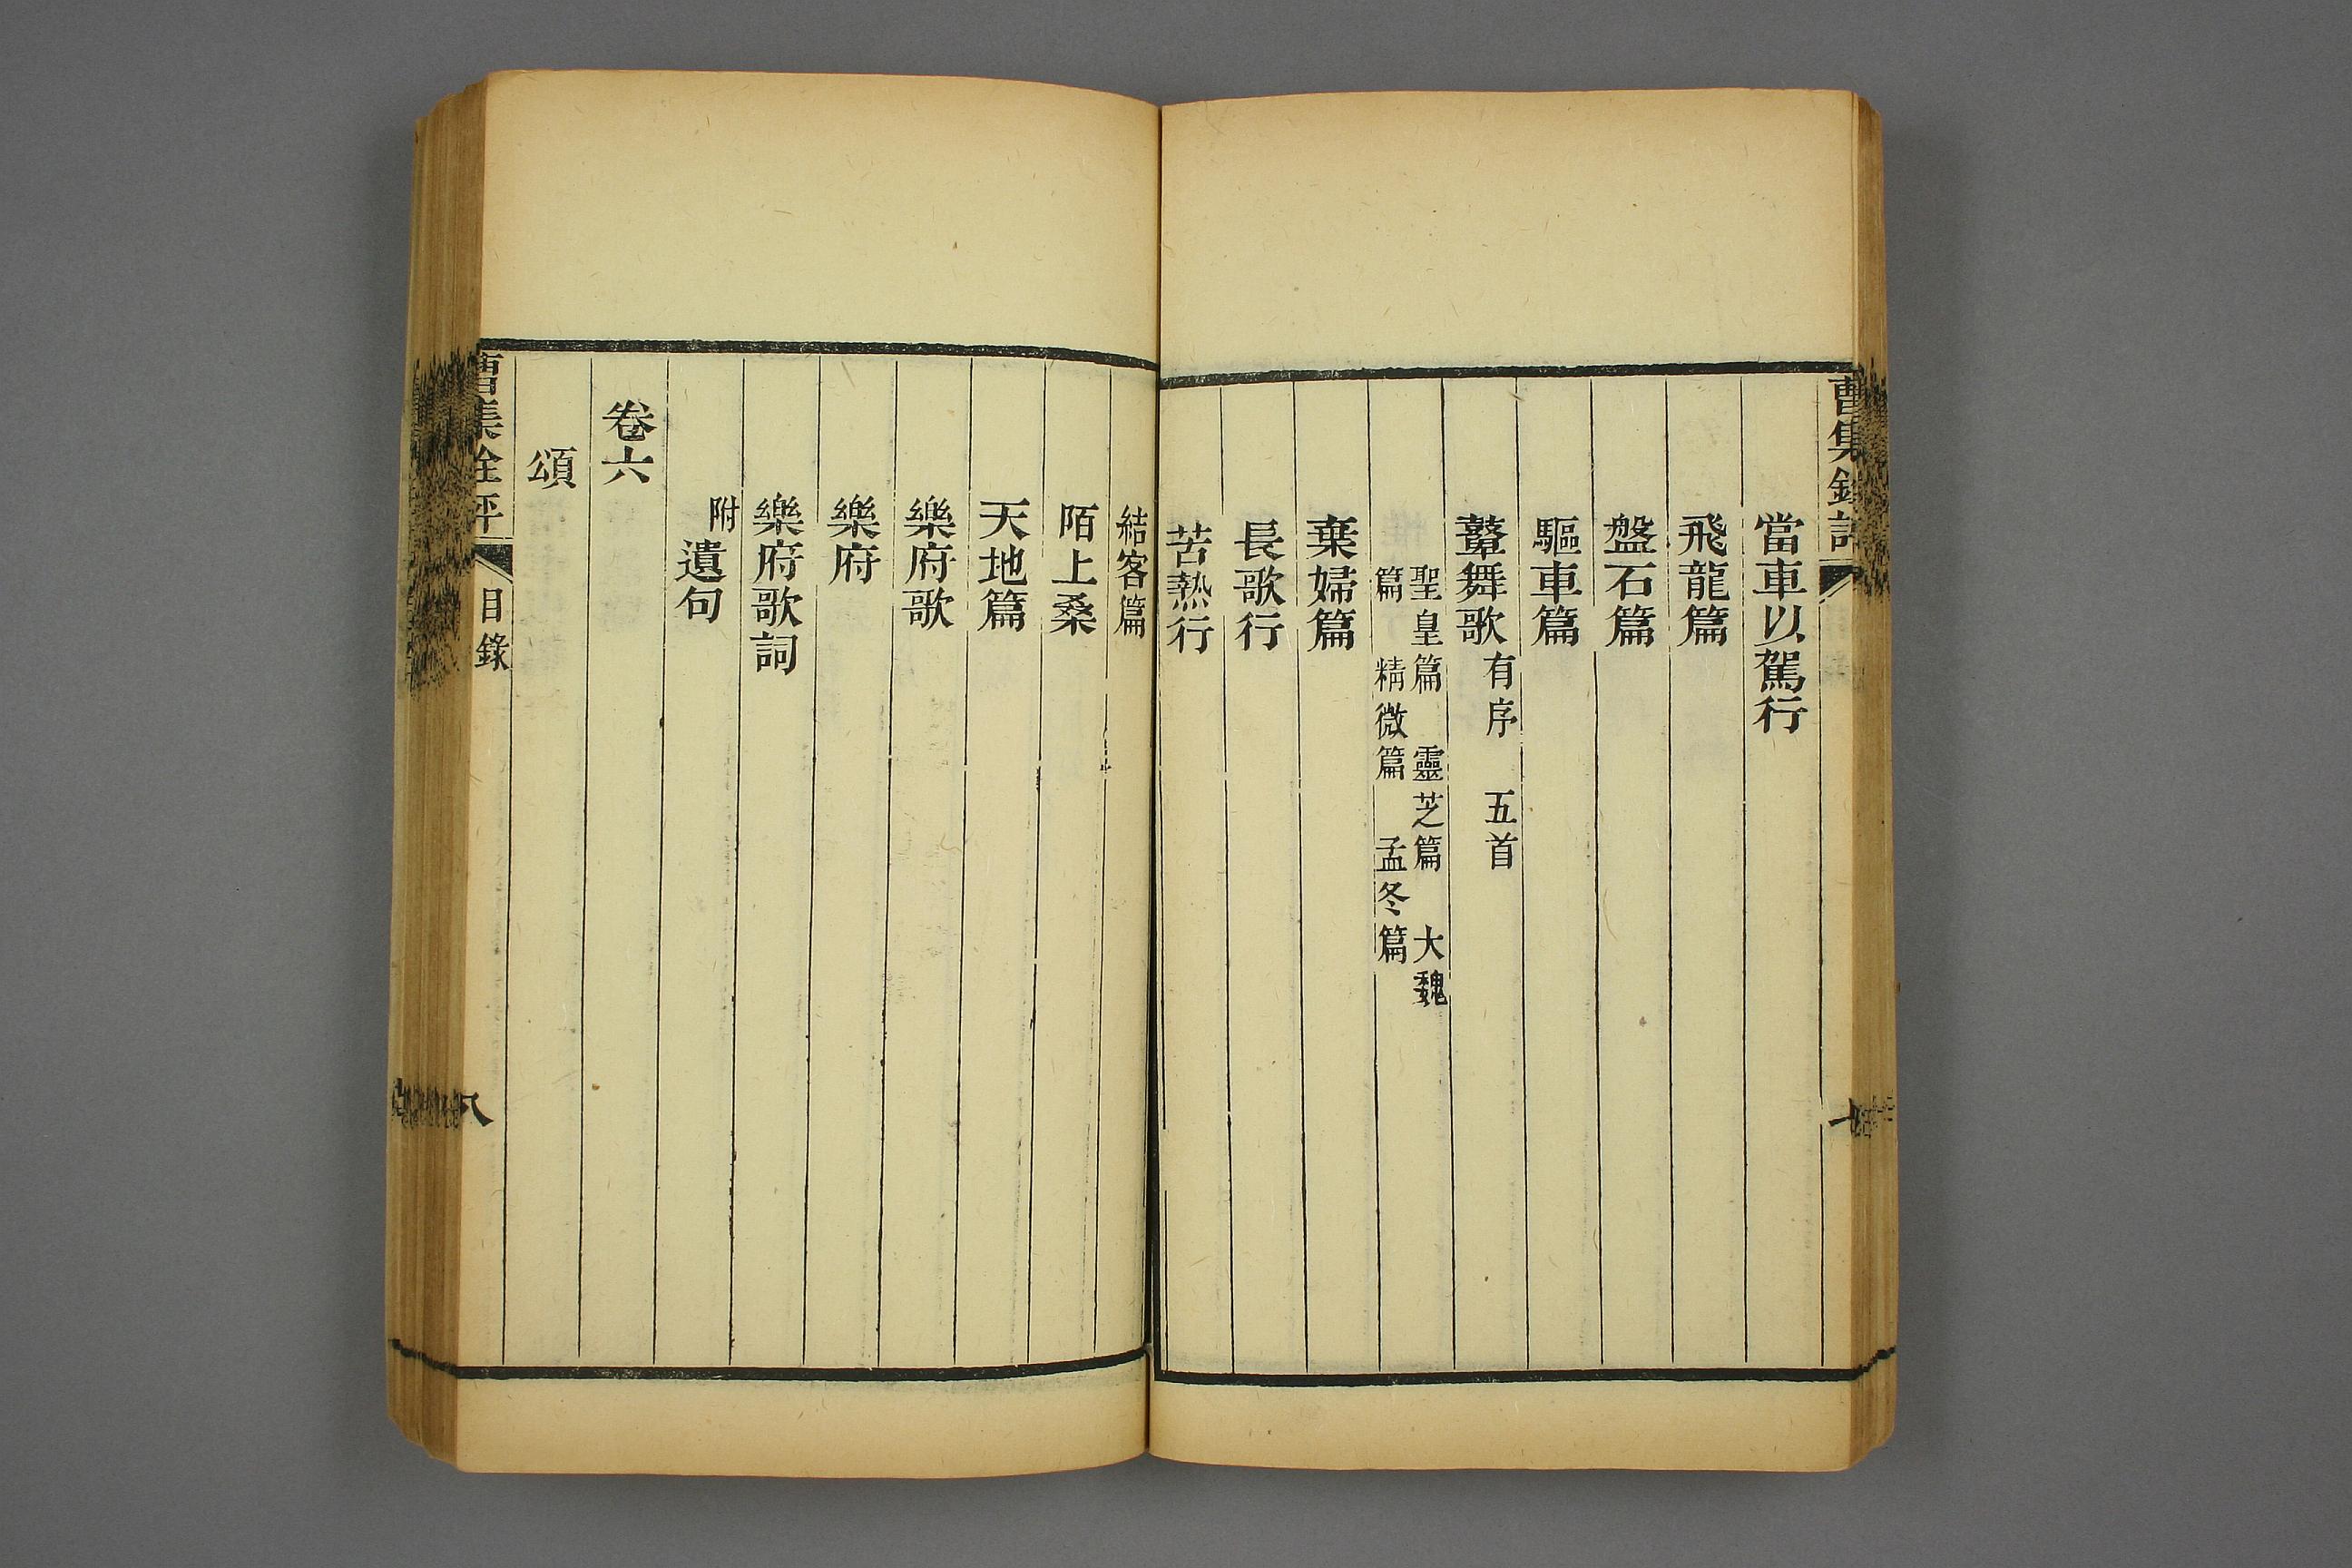 曹集銓評
當車以駕行
飛龍篇
盤石篇
驅車篇
鼙舞歌有序 五首
聖皇篇 靈芝篇 大魏
篇 精微篇 孟冬篇
棄婦篇
長歌行
苦熱行
結客篇
陌上桑
天地篇
樂府歌
樂府
樂府歌詞
附遺句
卷六
頌
曹集銓評 目錄 八